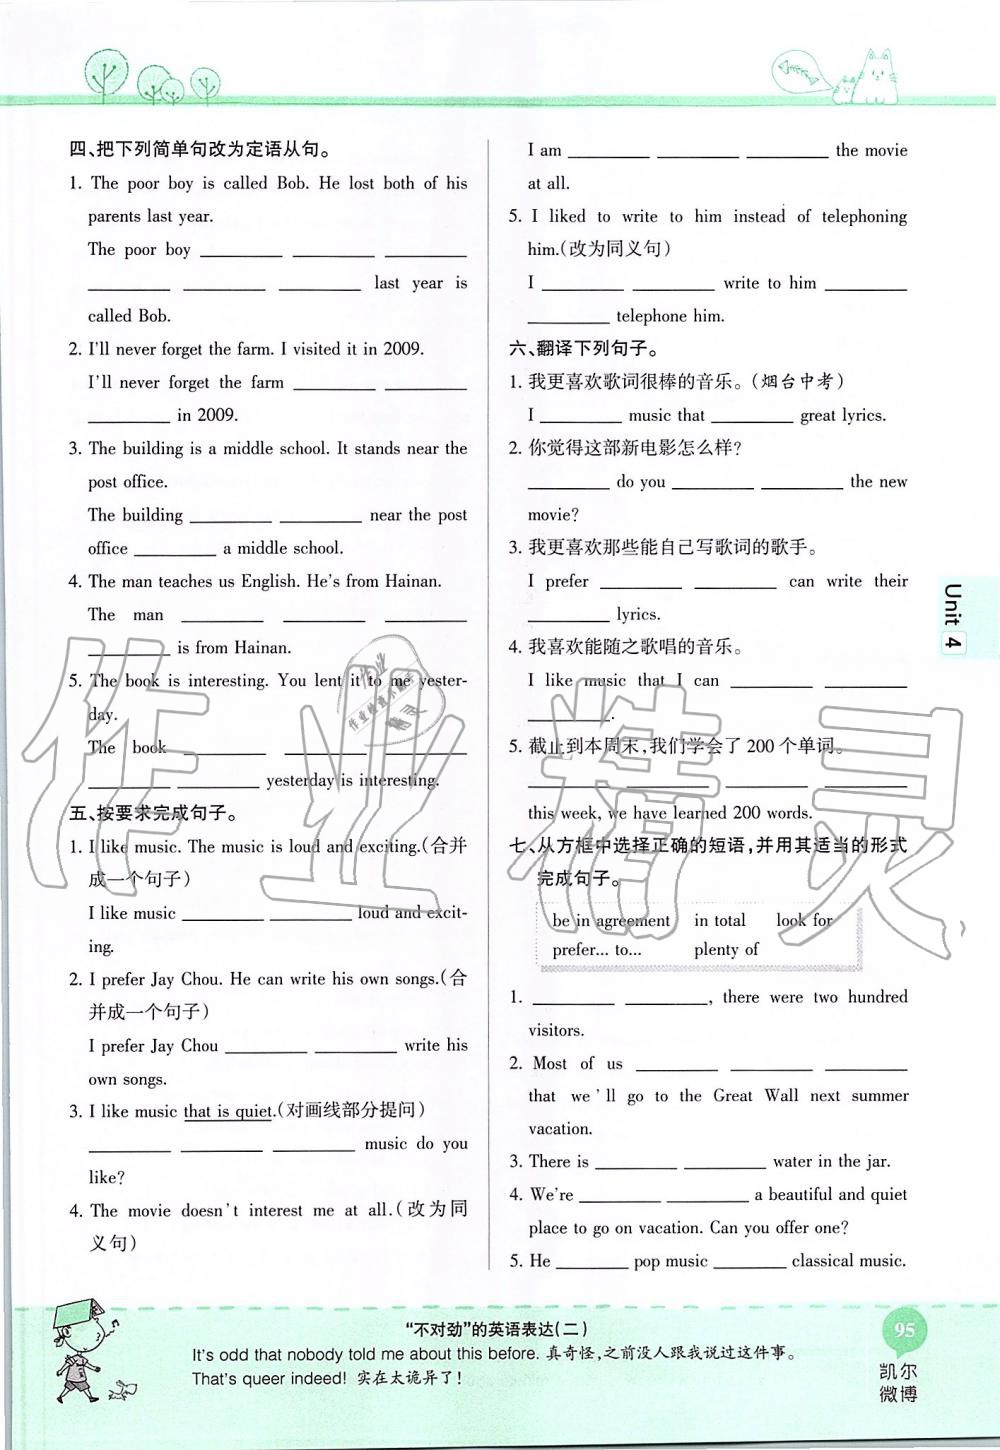 四、把下列简单句改为定语从句。
1. The poor boy is called Bob. He lost both of his
parents last year.
The poor boy ________ ________ ________
________ ________ ________ last year is
called Bob.
2. I'll never forget the farm. I visited it in 2009.
I'll never forget the farm ________ ________
________ in 2009.
3. The building is a middle school. It stands near the
post office.
The building ________ ________ near the post
office ________ a middle school.
4. The man teaches us English. He's from Hainan.
The man ________ ________ ________
________ is from Hainan.
5. The book is interesting. You lent it to me yester-
day.
The book ________ ________ ________
________ ________ yesterday is interesting.
五、按要求完成句子。
1. I like music. The music is loud and exciting.(合并
成一个句子)
I like music ________ ________ loud and excit-
ing.
2. I prefer Jay Chou. He can write his own songs.(合
并成一个句子)
I prefer Jay Chou ________ ________ write his
own songs.
3. I like music that is quiet.(对画线部分提问)
________ ________ ________ music do you
like?
4. The movie doesn't interest me at all.(改为同
义句)
I am ________ ________ ________ the movie
at all.
5. I liked to write to him instead of telephoning
him.(改为同义句)
I ________ ________ write to him ________
________ telephone him.
六、翻译下列句子。
1. 我更喜欢歌词很棒的音乐。(烟台中考)
I ________ music that ________ great lyrics.
2. 你觉得这部新电影怎么样?
________ do you ________ ________ the new
movie?
3. 我更喜欢那些能自己写歌词的歌手。
I prefer ________ ________ can write their
________ lyrics.
4. 我喜欢能随之歌唱的音乐。
I like music that I can ________ ________
________.
5. 截止到本周末,我们学会了 200 个单词。
________ ________ ________ ________
this week, we have learned 200 words.
七、从方框中选择正确的短语,并用其适当的形式
完成句子。
be in agreement in total look for
prefer... to... plenty of
1. ________ ________, there were two hundred
visitors.
2. Most of us ________ ________ ________
that we'll go to the Great Wall next summer
vacation.
3. There is ________ ________ water in the jar.
4. We're ________ ________ a beautiful and quiet
place to go on vacation. Can you offer one?
5. He ________ pop music ________ classical music.
Unit 4
作业精灵
"不对劲"的英语表达(二)
It's odd that nobody told me about this before. 真奇怪,之前没人跟我说过这件事。
That's queer indeed! 实在太诡异了!
95
凯尔
微博